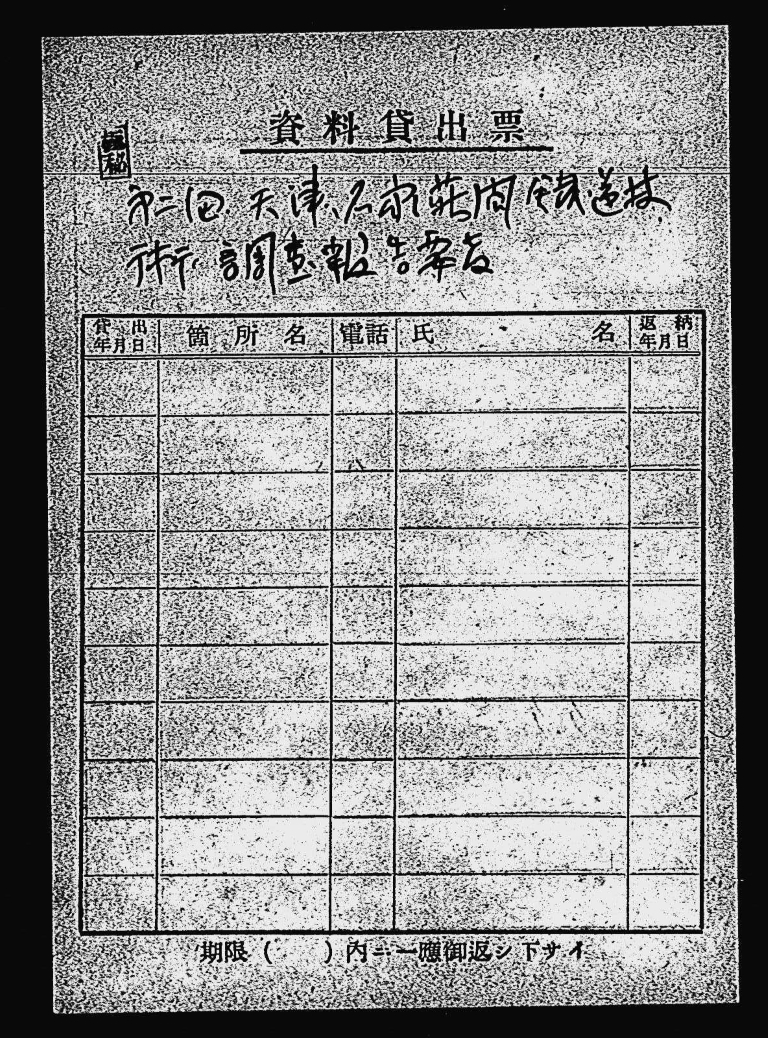 資料貸出票
極秘
第二回 天津、石家莊間鉄道技
術調査報告案
貸出年月日 箇所名 電話 氏名 返納年月日
期限(　　)内ニ一應御返シ下サイ